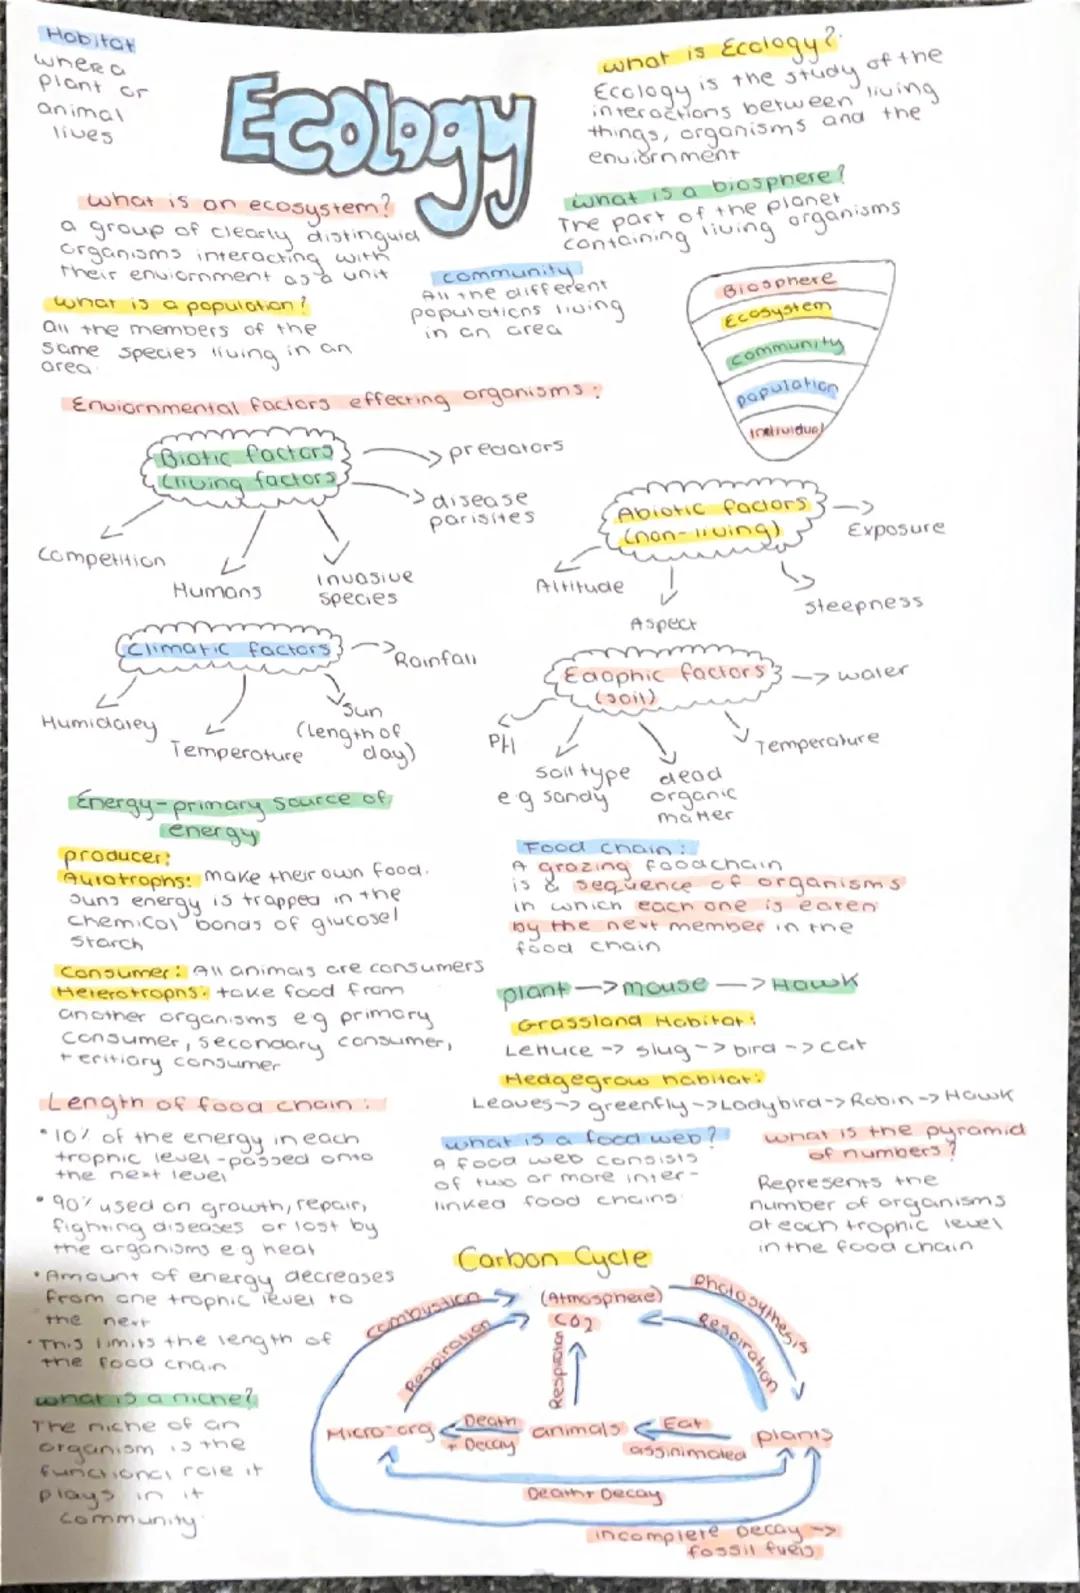 Habitat
where a
plant or
animal
lives
Ecology
what is Ecology?
Ecology is the study of the
interactions between living
things, organisms and the
enviornment
what is an ecosystem?
a group of clearly distinguid
organisms interacting with
their enviornment as a unit
what is a biosphere?
The part of the planet
containing living organisms
community
All the different
populations living
in an area
what is a population?
all the members of the
same species living in an
area.
Biosphere
Ecosystem
community
population
individual
Enviornmental factors effecting organisms:
Biotic factors
(living factors)
predators
disease
parisites
Competition
Humans
invasive
species
Abiotic factors
(non-living)
Exposure
Altitude
Aspect
steepness
Climatic factors
Rainfall
Humidatey
Temperature
Sun
(length of
day)
Edaphic factors
(soil)
water
PH
soil type
e.g sandy
dead
organic
matter
Temperature
Energy-primary source of
energy
producer:
Autotrophs: make their own food.
suns energy is trapped in the
chemical bonds of glucose/
starch
Consumer: All animals are consumers
Heterotrophs: take food from
another organisms e.g primary
consumer, secondary consumer,
teritiary consumer
Food chain:
A grazing foodchain
is a sequence of organisms
in which each one is eaten
by the next member in the
food chain
plant -> mouse -> Hawk
Grassland Habitat:
Lettuce -> slug -> bird -> cat
Hedgegrow habitat:
Leaves -> greenfly -> Ladybird -> Robin -> Hawk
Length of food chain:
• 10% of the energy in each
trophic level - passed onto
the next level
• 90% used on growth, repair,
fighting diseases or lost by
the organisms e.g heat
• Amount of energy decreases
from one trophic level to
the next
• This limits the length of
the food chain
what is a food web?
A food web consists
of two or more inter-
linked food chains
what is the pyramid
of numbers?
Represents the
number of organisms
at each trophic level
in the food chain
what is a niche?
The niche of an
organism is the
functional role it
plays in it
community
Carbon Cycle
(Atmosphere)
CO2
combustion
Respiration
Respiration
Respiration
Photosythesis
Micro-org
Death
+ Decay
animals
Eat
assinimated
plants
Death + Decay
incomplete Decay ->
fossil fuels